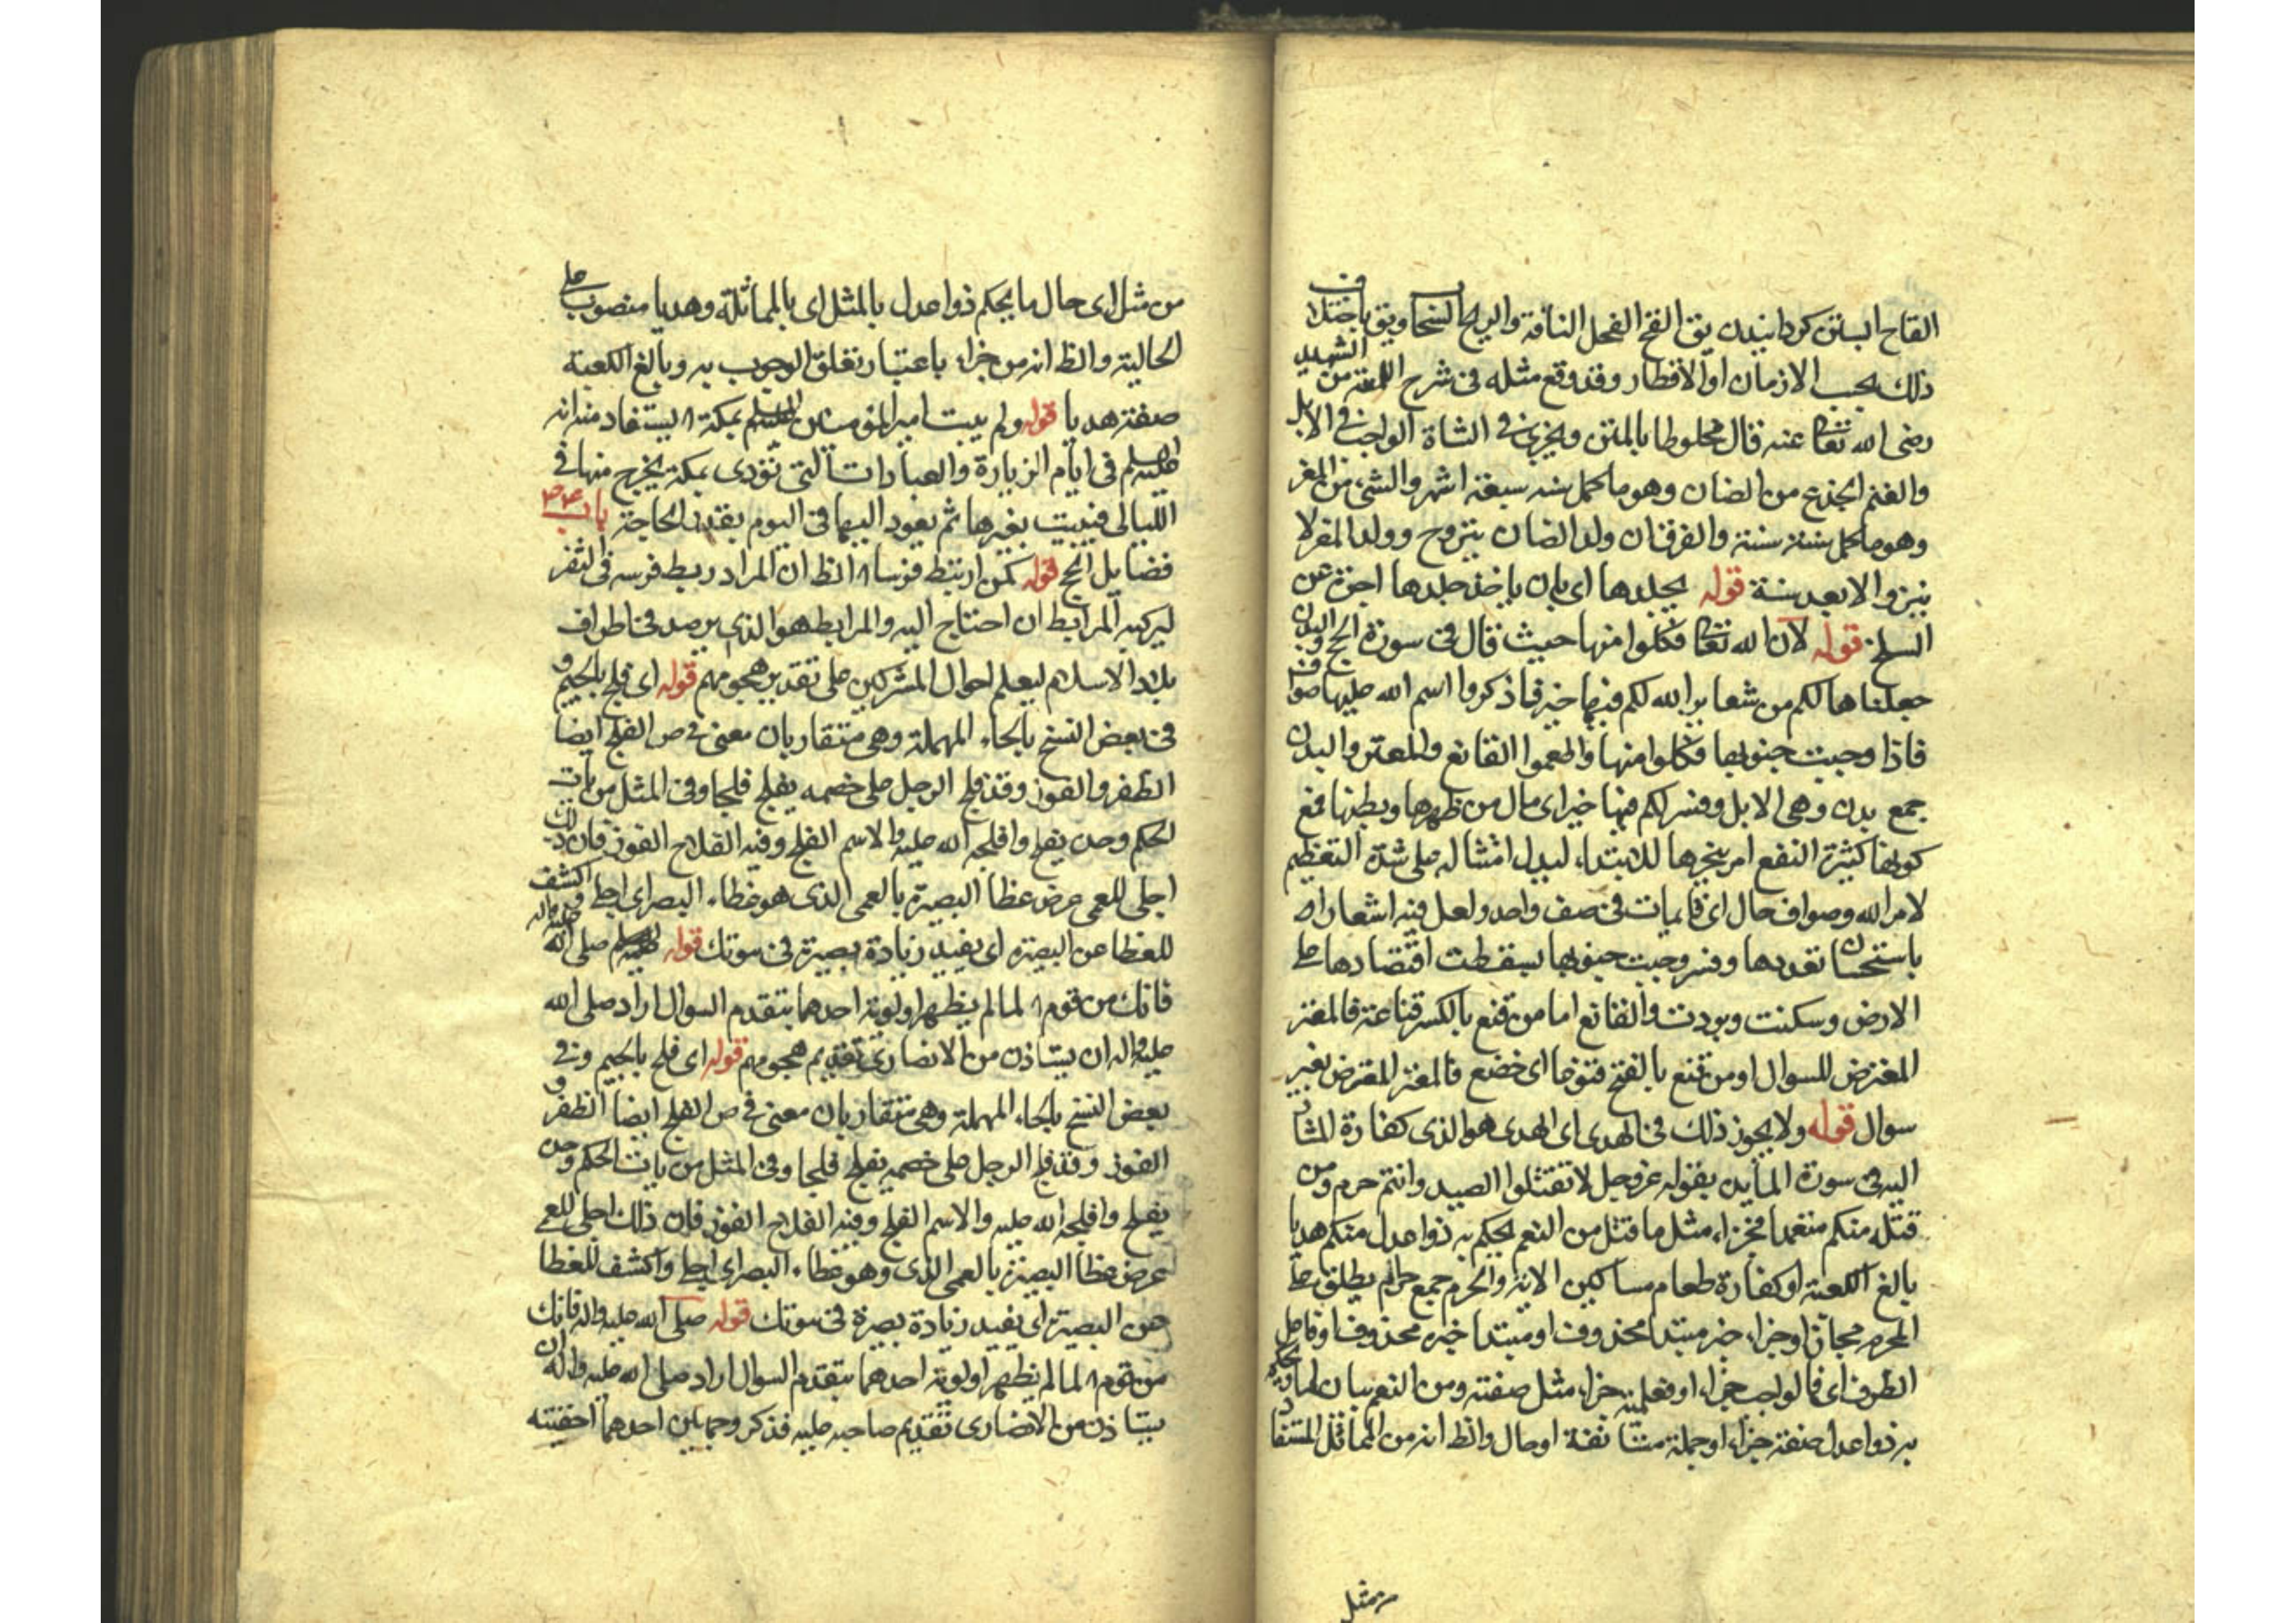 القاح ابستن كردانيدن يق القح الفحل الناقة والريح السحاب ويق باختلاف
ذلك بحسب الازمان او الاقطار وقد وقع مثله فى شرح اللمعة من الشهيد
رضى الله تعالى عنه قال مخلوطا بالمتن ويجزى فى الشاة الواجب فى الابل
والغنم الجذع من الضان وهو ما كمل سنه سبعة اشهر والثنى من المعز
وهو ما كمل سنة سنة والفرق ان ولد الضان ينزوح وولد المعز لا
ينزو الا بعد سنة قوله بجلدها اى بان ياخذ جلدها اجرة عن
السلخ قوله لان الله تعالى فكلوا منها حيث قال فى سورة الحج والبدن
جعلناها لكم من شعاير الله لكم فيها خير فاذكروا اسم الله عليها صواف
فاذا وجبت جنوبها فكلوا منها واطعموا القانع والمعتر والبدن
جمع بدن وهى الابل وفسر لكم فيها خير اى مال من ظهرها وبطنها فمع
كونها كثيرة النفع امر بنحرها للابتداء ليدل امتثاله على شدة التعظيم
لامر الله وصواف حال اى قايمات فى صف واحد ولعل فيه اشعارا
باستحسان تعددها وفسر وجبت جنوبها بسقطت اقتصادها على
الارض وسكنت وبردت والقانع اما من قنع بالكسر قناعة فالمعتر
المعترض للسوال او من قنع بالفتح قنوعا اى خضع فالمعتر المعترض بغير
سوال قوله ولا يجوز ذلك فى الهدى اى الهدى هو الذى كفارة المشار
اليه فى سورة المايدة بقوله عز وجل لا تقتلوا الصيد وانتم حرم ومن
قتله منكم متعمدا فجزاء مثل ما قتل من النعم يحكم به ذوا عدل منكم هديا
بالغ الكعبة او كفارة طعام مساكين الاية والحرم جمع حرام يطلق على
المحرم مجازا وجزاء خبر مبتدا محذوف او مبتدا خبره محذوف او فاعل
الظرف اى فالواجب جزاء او فعليه جزاء مثل صفته ومن النعم بيان لما ويحكم
به ذوا عدل صفة جزاء او جملة مستانفة او حال والظ انه من المماثل المستفاد
من مثل
من مثل اى حال ما يحكم ذوا عدل بالمثل اى بالمماثلة وهديا منصوب على
الحالية والظ انه من جزاء باعتبار تعلق الوجوب به وبالغ الكعبة
صفة هديا قوله ولم يبت امير المؤمنين عليه السلم بمكة ا يستفاد منه انه
عليه السلم فى ايام الزيارة والعبادات التى تؤدى بمكة يخرج منها فى
الليالى فيبيت بغيرها ثم يعود اليها فى اليوم بقدر الحاجة باب
فضايل الحج قوله كمن ارتبط فرسا ا الظ ان المراد ربط فرسه فى الثغر
ليركبه المرابط ان احتاج اليه والمرابط هو الذى يرصد فى اطراف
بلاد الاسلام ليعلم احوال المشركين على تقدير هجومهم قوله اى فلج بالجيم و
فى بعض النسخ بالحاء المهملة وهى متقاربان معنى فى ص الفلج ايضا
الظفر والفوز وقد فلج الرجل على خصمه يفلج فلجا وفى المثل من يات
الحكم وحده يفلج وافلجه الله عليه والاسم الفلج وفيه الفلاح الفوز فان ذلك
اجلى للعمى عرض عطا البصيرة بالعمى الذى هو غطاء البصر اى اجلى واكشف
للغطا عن البصيرة اى يفيد زيادة بصيرة فى موتك قوله صلى الله عليه واله
فانك من قوم ا لما لم يظهر اولوية احدهما بتقدم السوال اراد صلى الله
عليه واله ان يستاذن من الانصارى تقديم هجومهم قوله اى فلج بالجيم وفى
بعض النسخ بالحاء المهملة وهى متقاربان معنى فى ص الفلج ايضا الظفر و
الفوز وقد فلج الرجل على خصمه يفلج فلجا وفى المثل من يات الحكم وحده
يفلج وافلجه الله عليه والاسم الفلج وفيه الفلاح الفوز فان ذلك اجلى للعمى
عرض عطا البصيرة بالعمى الذى وهو غطاء البصر اى اجلى واكشف للغطا
عن البصيرة اى يفيد زيادة بصيرة فى موتك قوله صلى الله عليه واله فانك
من قوم ا لما لم يظهر اولوية احدهما بتقدم السوال اراد صلى الله عليه واله ان
يستاذن من الانصارى تقديم صاحبه عليه فذكر وجهاين احدهما احقيته